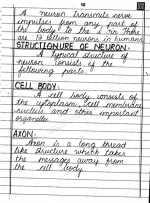 A neuron transmits nerve
impulses from any part of
the body to the
are 13 billion neurons in humans
STRUCTIONURE OF NEURON:
A typical structure of
neuron consists of the
following parts
CELL BODY:
A cell body consists of
the cytoplasm, cell membrane
nucleus and other important
organelle
AXON:
Axon is a long thread
like structure which takes
the messages away from
the cell body